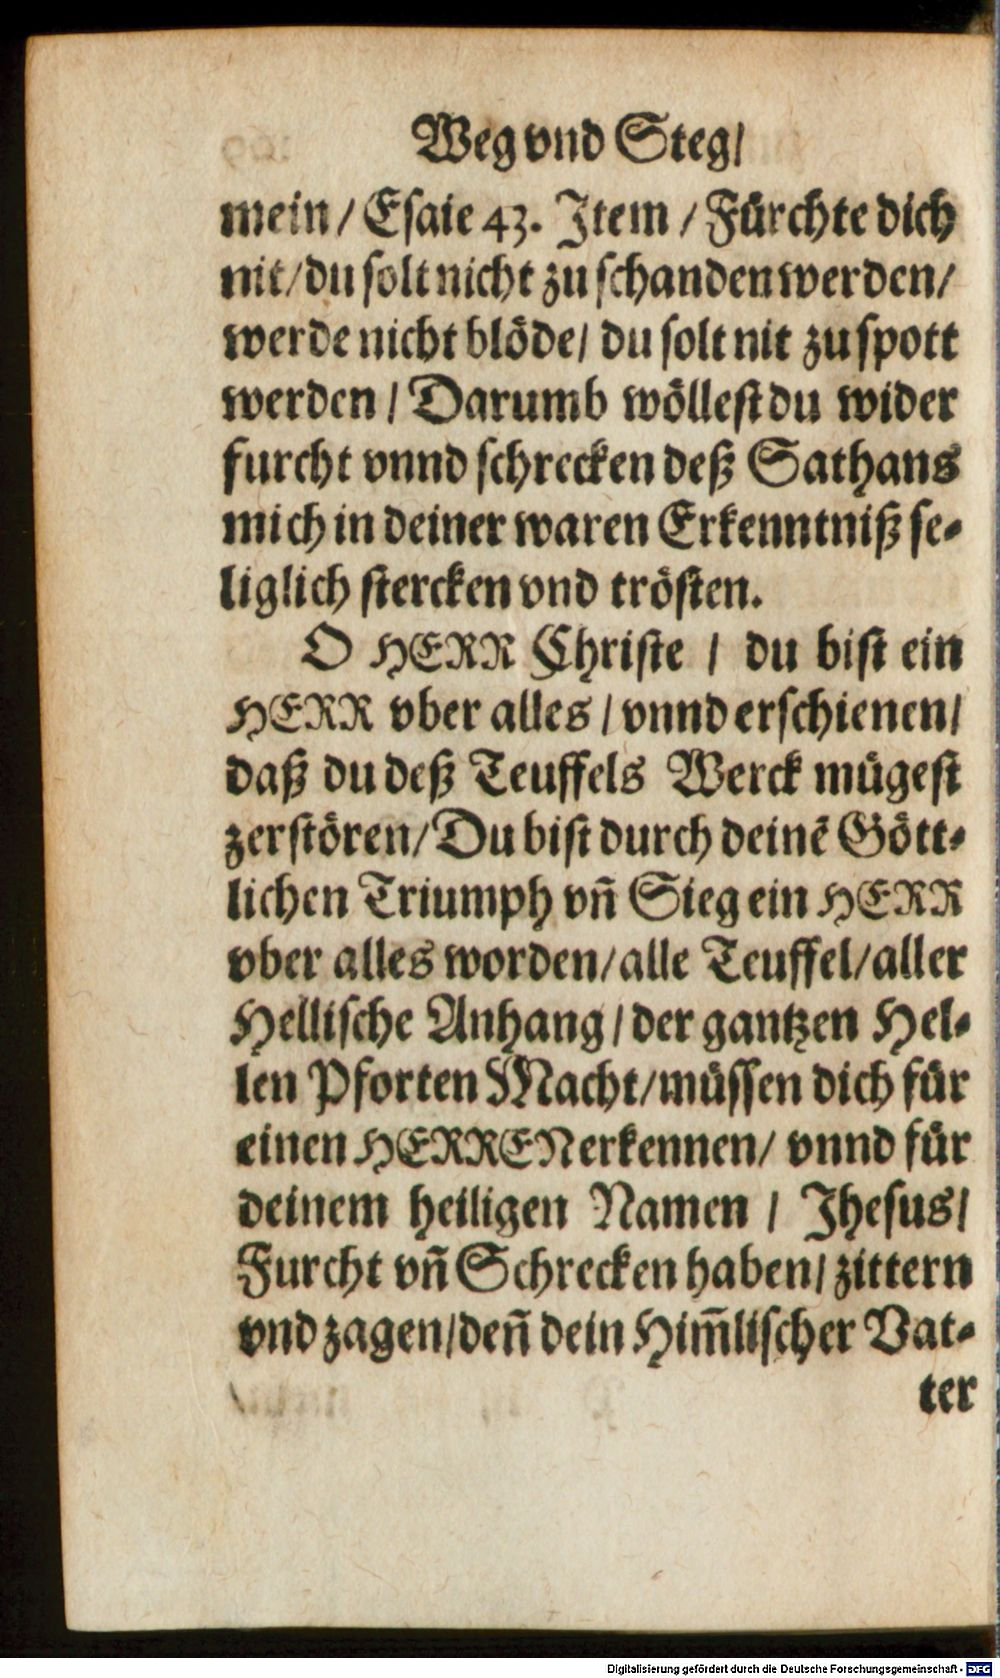 Weg vnd Steg/
mein / Esaie 43. Item / Fürchte dich
nit / du solt nicht zu schanden werden /
werde nicht blöde / du solt nit zu spott
werden / Darumb wöllest du wider
furcht vnnd schrecken deß Sathans
mich in deiner waren Erkenntniß se-
liglich stercken vnd trösten.
O HERR Christe / du bist ein
HERR vber alles / vnnd erschienen /
daß du deß Teuffels Werck mügest
zerstören / Du bist durch deinē Gött-
lichen Triumph vn̄ Sieg ein HERR
vber alles worden / alle Teuffel / aller
Hellische Anhang / der gantzen Hel-
len Pforten Macht / müssen dich für
einen HERREN erkennen / vnnd für
deinem heiligen Namen / Jhesus /
Furcht vn̄ Schrecken haben / zittern
vnd zagen / den̄ dein Him̄lischer Vat-
ter
Digitalisierung gefördert durch die Deutsche Forschungsgemeinschaft - DFG